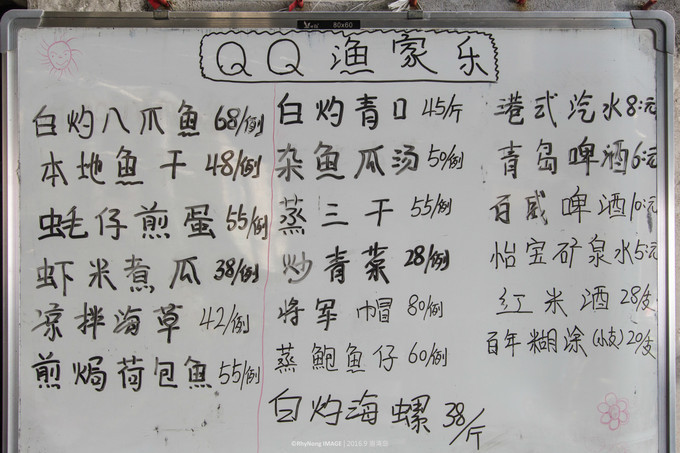 80x60
QQ渔家乐
白灼八爪鱼 68/例
本地鱼干 48/例
蚝仔煎蛋 55/例
虾米煮瓜 38/例
凉拌海草 42/例
煎焗荷包鱼 55/例
白灼青口 45/斤
杂鱼瓜汤 50/例
蒸三干 55/例
炒青菜 28/例
将军帽 80/例
蒸鲍鱼仔 60/例
白灼海螺 38/斤
港式汽水 8元
青岛啤酒 6元
百威啤酒 10元
怡宝矿泉水 5元
红米酒 28支
百年糊涂(小支) 20支
©RhyNong IMAGE | 2018